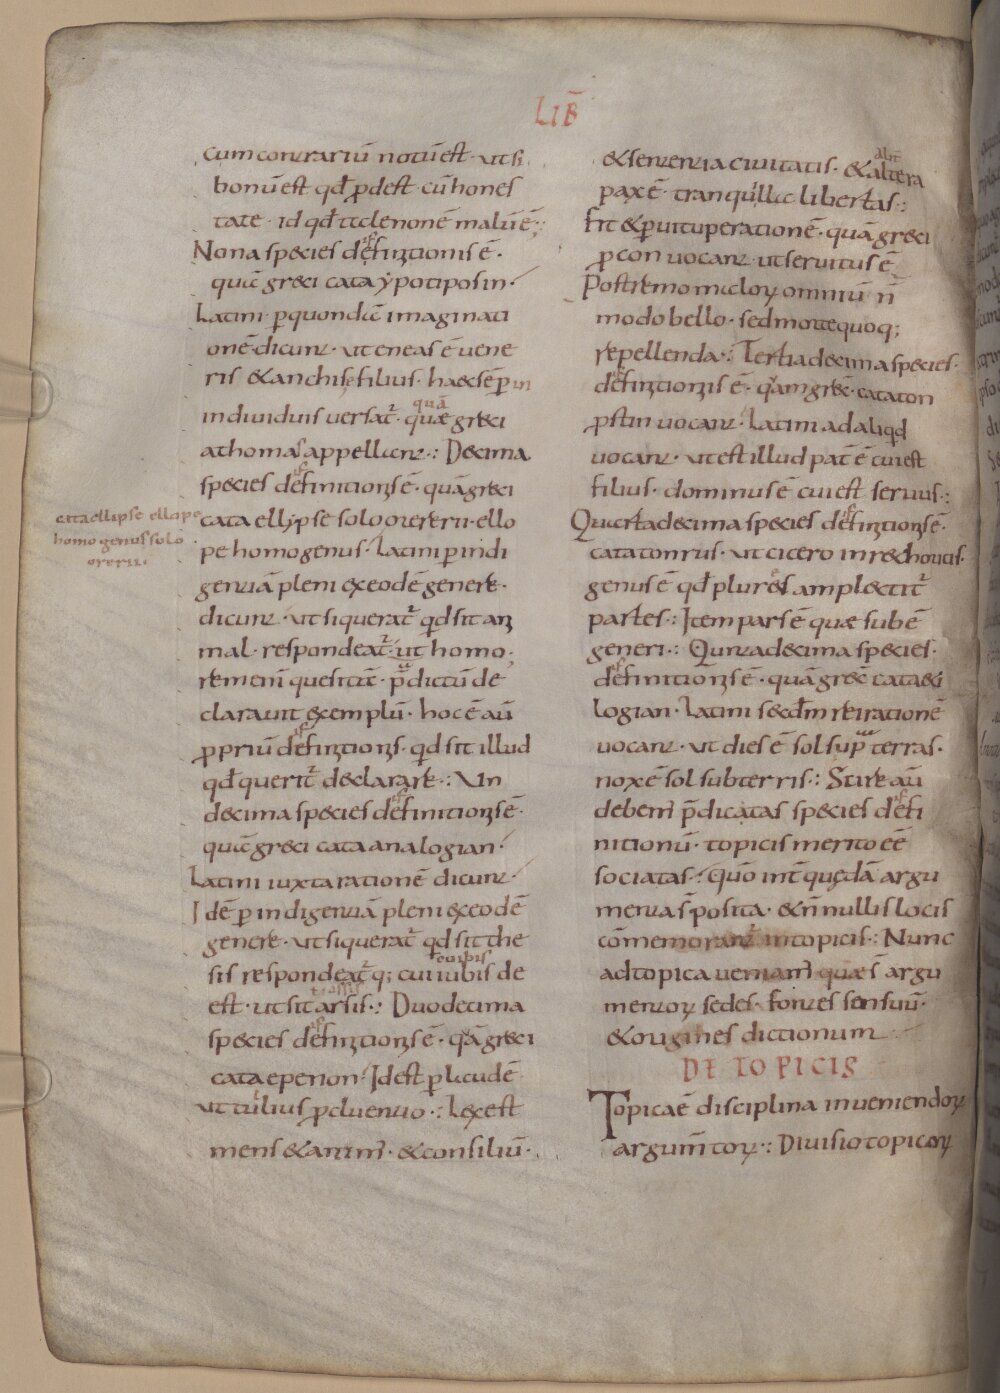 LIB̄
cum contrariū notū est · ut si
bonū est qđ ꝓdest · cū hones
tate · id qđ tale non ē malū ē ;
Nona species definitionis ē ·
quā greci cata ẏpotiposin ·
Latini · ꝑ quondā imaginati
onē · dicunt · ut eneas ē uene
ris & anchisę filius · haec sēꝑ in
indiuiduis uersat᷑ · quae greci
quā
athoma appellant ·: Decima
species definitionis ē · quā greci
cata ellypse solo orererii · ello
cata ellipse ellope
homogenus solo
orerii ·
pe homogenus · Latini ꝑ indi
gentiā pleni ex eodē genere ·
dicunt · ut si querat᷑ qđ sit ani
mal · respondeat᷑ · ut homo ;
rem eni quesitā · p̄dictū de
clarauit exemplū · hoc ē aū
ꝓpriū definitionis · qđ sit illud
qđ querit᷑ declarare ·: Un
decima species definitionis ē ·
quā greci cata analogian ·
Latini iuxta rationē dicunt ·
Idē ꝑ indigentiā pleni ex eodē
genere · ut si querat᷑ qđ sit the
sis respondeat᷑q; cui iubis de
est · ut sit arsis ·: Duodecima
species definitionis ē · quā greci
cata epenon · Id est ꝑ laudē ·
ut tulius ꝓ cluentio ·: Lex est
mens & anim · & consiliū ·
& sententia ciuitatis · & altera
alit̄
pax ē · tranquilla libertas ·:
fit & ꝑ uituperationē · quā greci
ꝓcon uocant · ut seruitus ē
Postremo maloꝝ omniū n̄
modo bello · sed morte quoq;
repellenda ·: Tertia decima species ·
definitionis ē · quam greci · cata ton
ꝓstin uocant · Latini ad aliqd
uocant · ut est illud pat̄ ē cui est
filius · dominus ē cui est seruus ·:
Quarta decima species definitionis ē ·
cata ton rus · ut cicero in rechoricis ·
genus ē qđ plures amplectit᷑
partes ·: Item pars ē quae sub ē
generi ·: Quinta decima species ·
definitionis ē · quā greci cata eti
logian · Latini secđm rei rationē
uocant · ut dies ē sol sup̄ terras ·
nox ē sol sub terris ·: Scire aū
debem p̄dicatas species defi
nitionū · topicis merito eē
sociatas · quō int̄ quędā argu
menta s̄ posita · & n̄nullis locis
cōmemorant᷑ in topicis ·: Nunc
ad topica ueniam quae s̄ argu
mentoꝝ sedes · fontes sensuū ·
& origines dictionum
DE TOPICIS
Topica ē disciplina inueniendoꝝ
argum̄toꝝ ·: Diuisio topicoꝝ